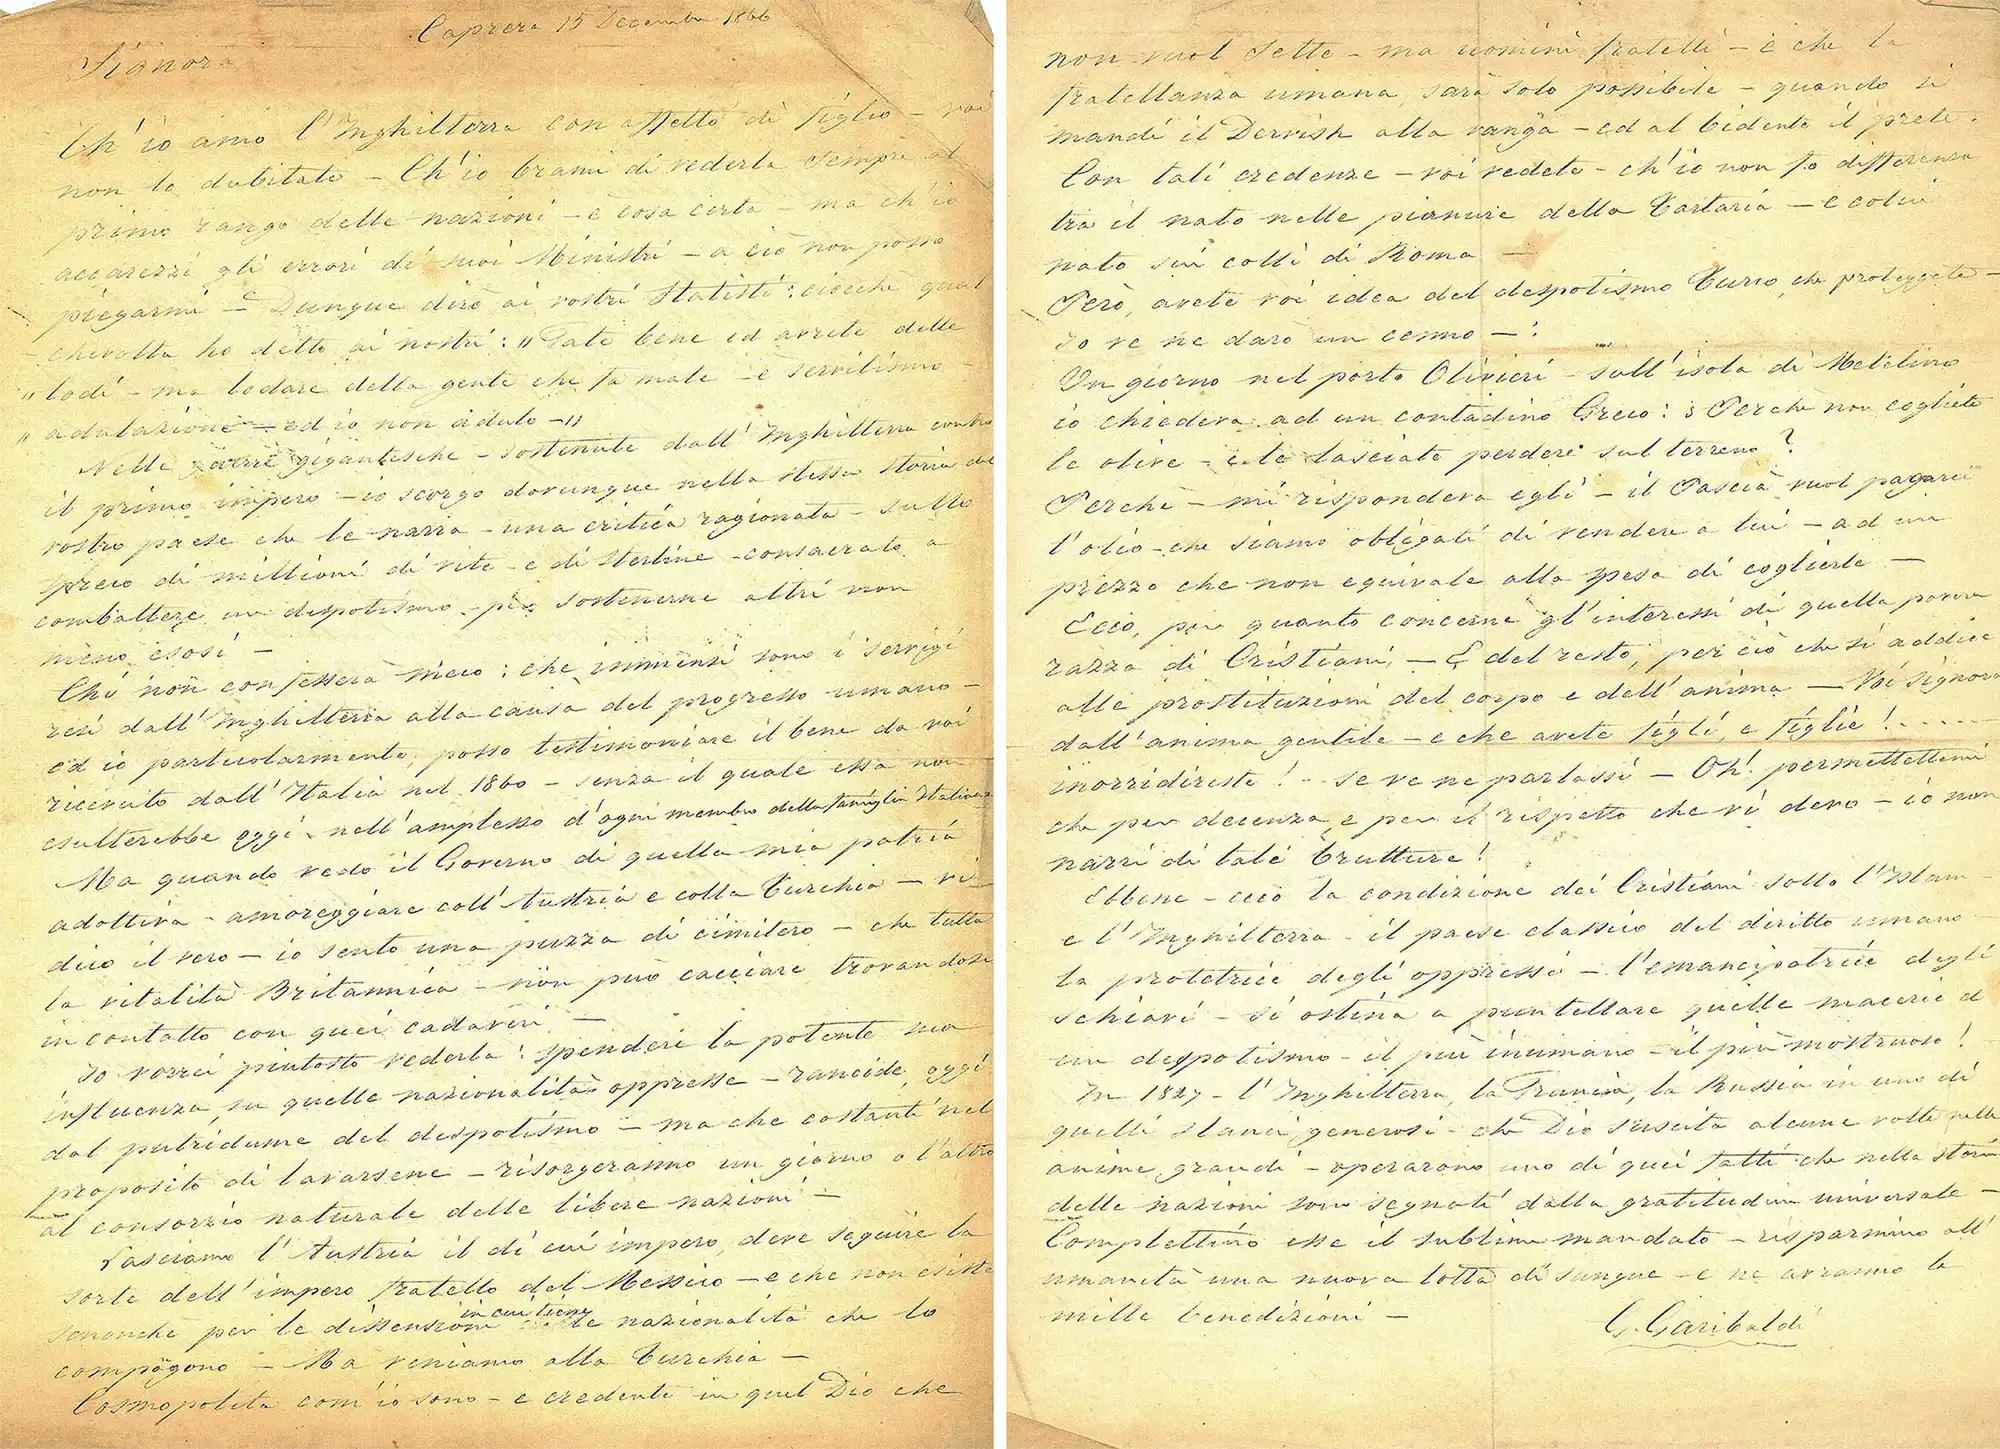 Caprera 15 Decembre 1866
Signora
Ch'io amo l'Inghilterra con affetto di figlio – voi
non lo dubitate – Ch'io brami di vederla sempre al
primo rango delle nazioni – è cosa certa – ma ch'io
accarezzi gli errori di suoi Ministri – a ciò non posso
piegarmi – Dunque dirò ai vostri Statisti: ciocchè qual
chevolta ho detto ai nostri: „Fate bene ed avrete delle
„ lodi – ma lodare della gente che fa male – è servilismo –
„ adulazione – ed io non adulo – „
Nelle guerre gigantesche – sostenute dall'Inghilterra contro
il primo impero – io scorgo dovunque nella stessa storia del
vostro paese che le narra – una critica ragionata – sullo
spreco di millioni di vite – e di sterline – consacrate a
combattere un despotismo – per sostenerne altri non
meno esosi –
Chi non confesserà meco: che immensi sono i servigi
resi dall'Inghilterra alla causa del progresso umano –
ed io particolarmente, posso testimoniare il bene da voi
ricevuto dall'Italia nel 1860 – senza il quale essa non
esulterebbe oggi – nell'amplesso d'ogni membro della famiglia Italiana
Ma quando vedo il Governo di quella mia patria
adottiva – amoreggiare coll'Austria e colla Turchia – vi
dico il vero – io sento una puzza di cimitero – che tutta
la vitalità Britannica – non può cacciare trovandosi
in contatto con quei cadaveri –
Io vorrei piutosto vederla: spendere la potente sua
influenza, su quelle nazionalità oppresse – rancide, oggi
dal putridume del despotismo – ma che costanti nel
proposito di lavarsene – risorgeranno un giorno o l'altro
al consorzio naturale delle libere nazioni –
Lasciamo l'Austria il di cui impero, deve seguire la
sorte dell'impero fratello del Messico – e che non esiste
senonchè per le dissensioni in cui tiene le nazionalità che lo
compogono – Ma veniamo alla Turchia –
Cosmopolita com'io sono – e credente in quel Dio che
non vuol sette – ma uomini fratelli – e che la
fratellanza umana, sarà solo possibile – quando si
mandi il Dervish alla vanga – ed al bidente il prete.
Con tali credenze – voi vedete – ch'io non fo differenza
tra il nato nelle pianure della Tartaria – e colui
nato sui colli di Roma –
Però, avete voi idea del despotismo Turco, che proteggete –
Io ve ne darò un cenno – :
Un giorno nel porto Olivieri – sull'isola di Metelino
io chiedeva ad un contadino Greco: Perche non cogliete
le olive – e le lasciate perdere sul terreno?
Perchè – mi rispondeva egli – il Pascià vuol pagarci
l'olio – che siamo obligati di vendere a lui – ad un
prezzo che non equivale alla spesa di coglierle –
Ecco, per quanto concerne gl'interessi di quella povera
razza di Cristiani, – E del resto, per ciò che si addice
alle prostituzioni del corpo e dell'anima – Voi signora
dall'anima gentile – e che avete figli, e figlie! . . . . .
inorridireste! . . se ve ne parlassi – Oh! permettettemi
che per decenza, e per il rispetto che vi devo – io non
narri di tale brutture!
Ebbene – ecco la condizione dei Cristiani sotto l'Islam –
e l'Inghilterra – il paese classico del diritto umano –
la protetrice degli oppressi – l'emancipatrice degli
schiavi – si ostina a puntellare quelle macerie d
un despotismo – il più inumano – il più mostruoso!
In 1827 – l'Inghilterra, la Francia, la Russia in uno di
quelli slanci generosi – che Dio suscita alcune volte nelle
anime grandi – operarono uno di quei fatti che nella storia
delle nazioni son segnati dalla gratitudine universale –
Complettino esse il sublime mandato – risparmino all'
umanità una nuova lotta di sangue – e ne avranno le
mille benedizioni –
G. Garibaldi